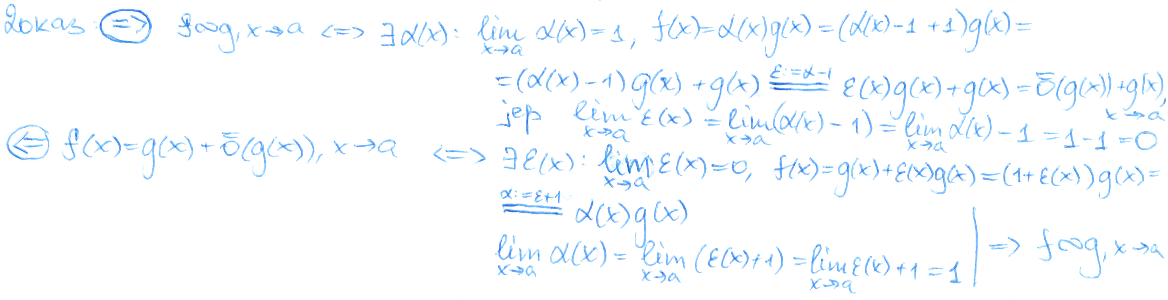 Доказ: (⇒) f∾g, x→a <=> ∃α(x): lim_{x→a} α(x)=1, f(x)=α(x)g(x)=(α(x)-1+1)g(x)=
=(α(x)-1)g(x)+g(x) \overset{ε:=α-1}{=} ε(x)g(x)+g(x)=ō(g(x))+g(x), x→a
јер lim_{x→a} ε(x)=lim_{x→a}(α(x)-1)=lim_{x→a} α(x)-1=1-1=0
(⇐) f(x)=g(x)+ō(g(x)), x→a <=> ∃ε(x): lim_{x→a} ε(x)=0, f(x)=g(x)+ε(x)g(x)=(1+ε(x))g(x)=
\overset{α:=ε+1}{=} α(x)g(x)
lim_{x→a} α(x)=lim_{x→a} (ε(x)+1)=lim_{x→a} ε(x)+1=1 | => f∾g, x→a